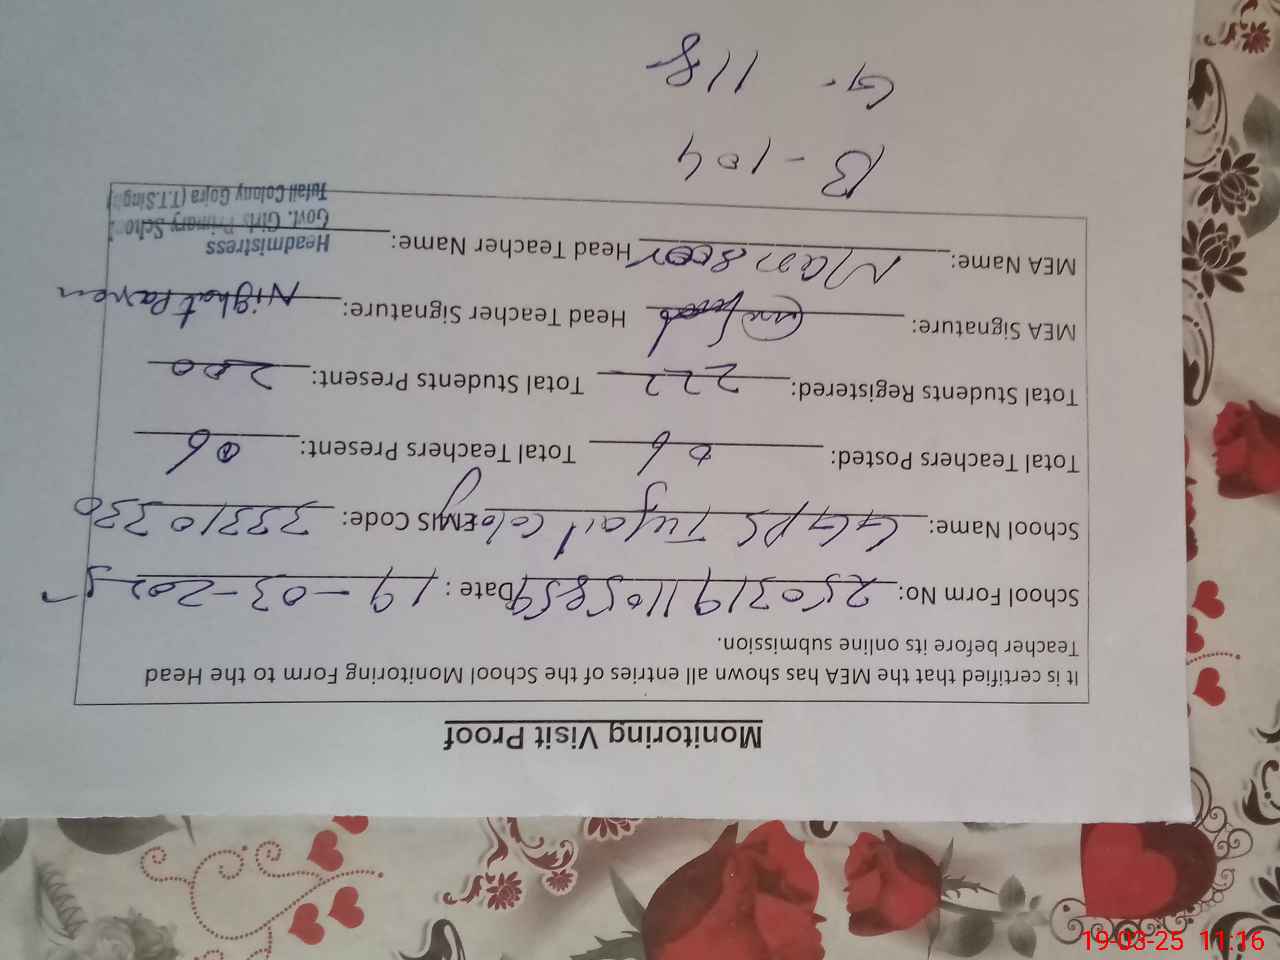 Monitoring Visit Proof
It is certified that the MEA has shown all entries of the School Monitoring Form to the Head
Teacher before its online submission.
School Form No: 2503191105859 Date : 19-03-2025
School Name: GGPS Tufail Colony EMIS Code: 33310330
Total Teachers Posted: 06 Total Teachers Present: 06
Total Students Registered: 222 Total Students Present: 200
MEA Signature: Head Teacher Signature: Nighat Parveen
MEA Name: Mansoor Head Teacher Name:
Headmistress
Govt. Girls Primary School
Tufail Colony Gojra (T.T.Sing
B - 104
G - 118
19-03-25 11:16